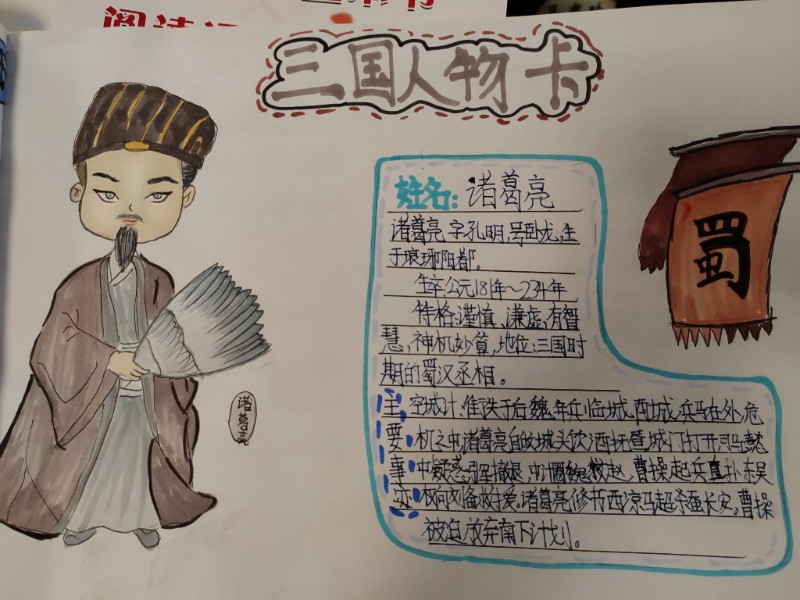 三国人物卡
姓名:诸葛亮
诸葛亮,字孔明,号卧龙,生
于琅琊阳都。
生卒公元181年~234年
性格:谨慎、谦虚,有智
慧,神机妙算,地位:三国时
期的蜀汉丞相。
主要事迹
空城计,街
兵临城,西城,兵马在外,危
机之中,诸葛亮自
城头饮酒抚
城门打开,司马懿
中疑惑
撤退,
围魏救赵,曹操起兵直扑东吴
刘备救援,诸葛亮修书西凉马超杀
长安,曹操
被迫放弃南下计划。
诸葛亮
蜀